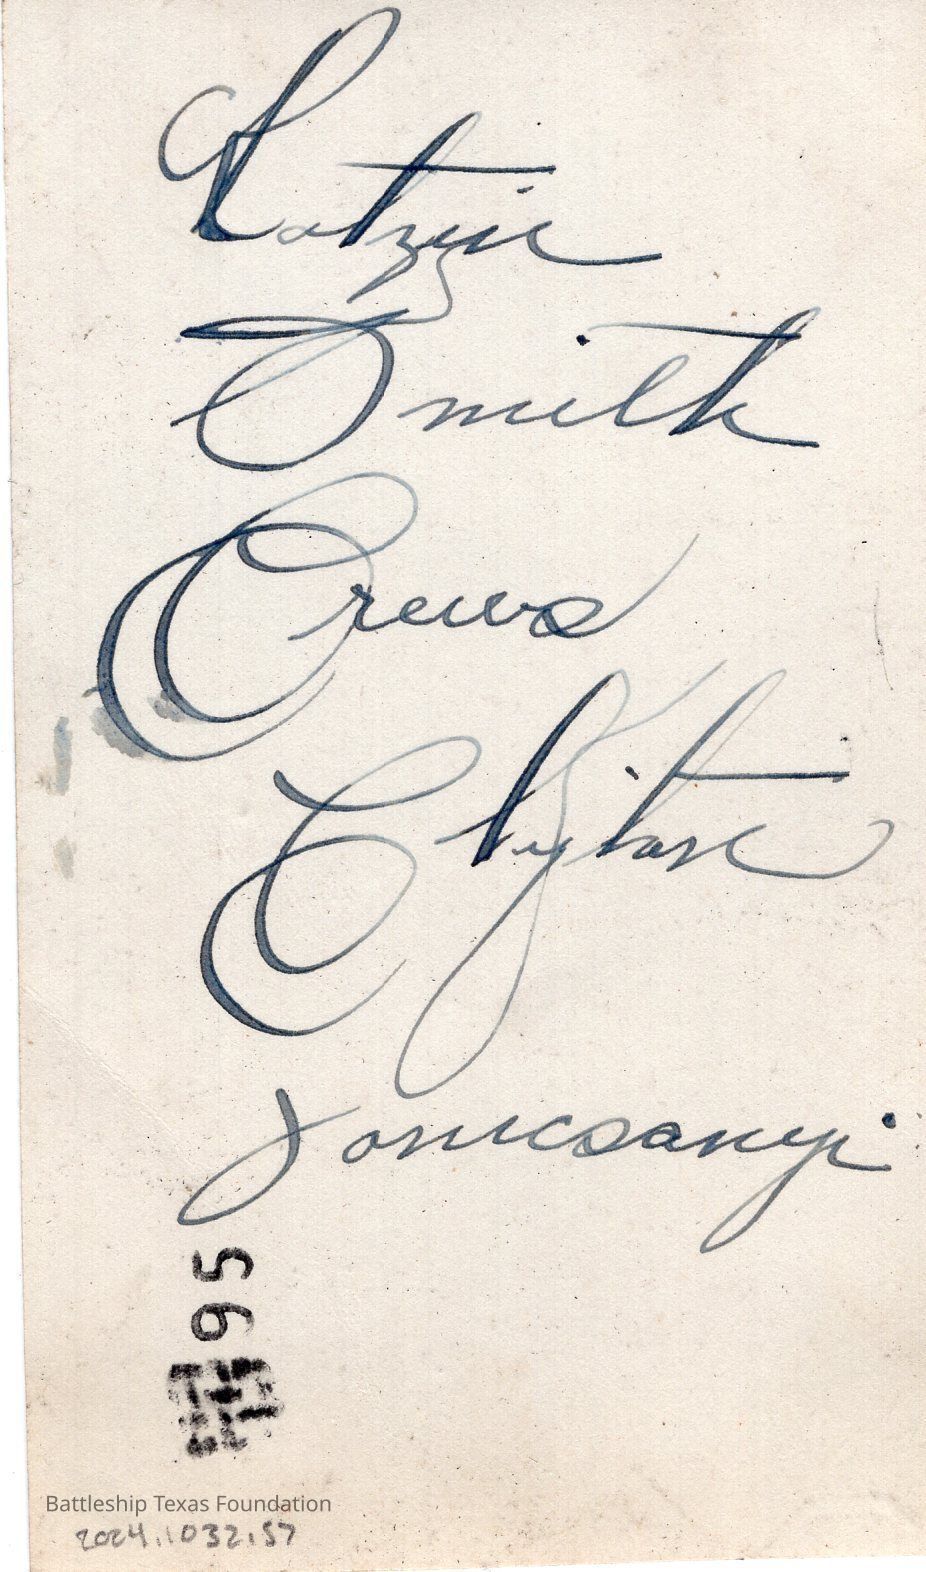 Smith
Crews
Clifton
Tomcsanyi
95
Battleship Texas Foundation
2024.1032.57